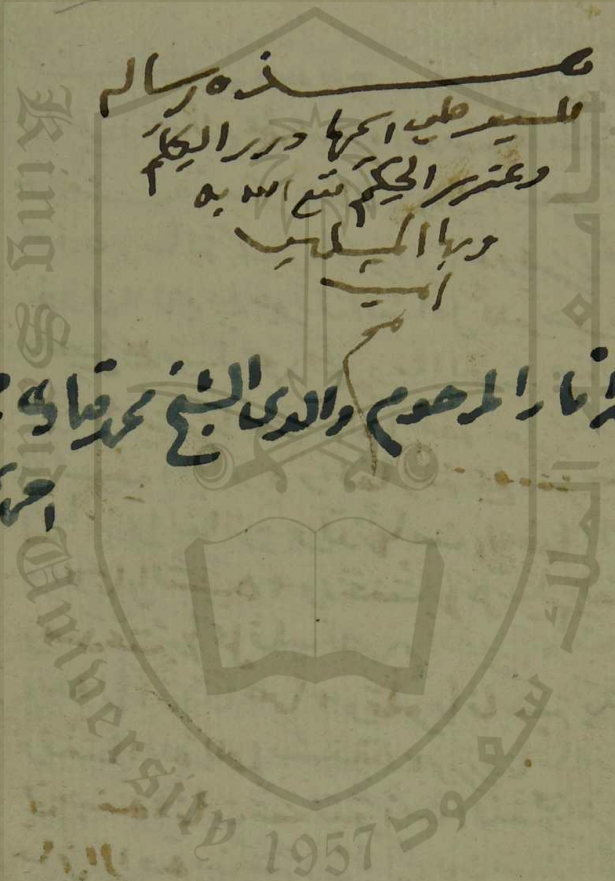 هذه رسالة
للسيوطي اسمها درر الكلم
وغرر الحكم نفع الله به
وبها المسلمين
امين
م
اثار المرحوم والدى الشيخ محمد
King Saud University 1957
جامعة الملك سعود